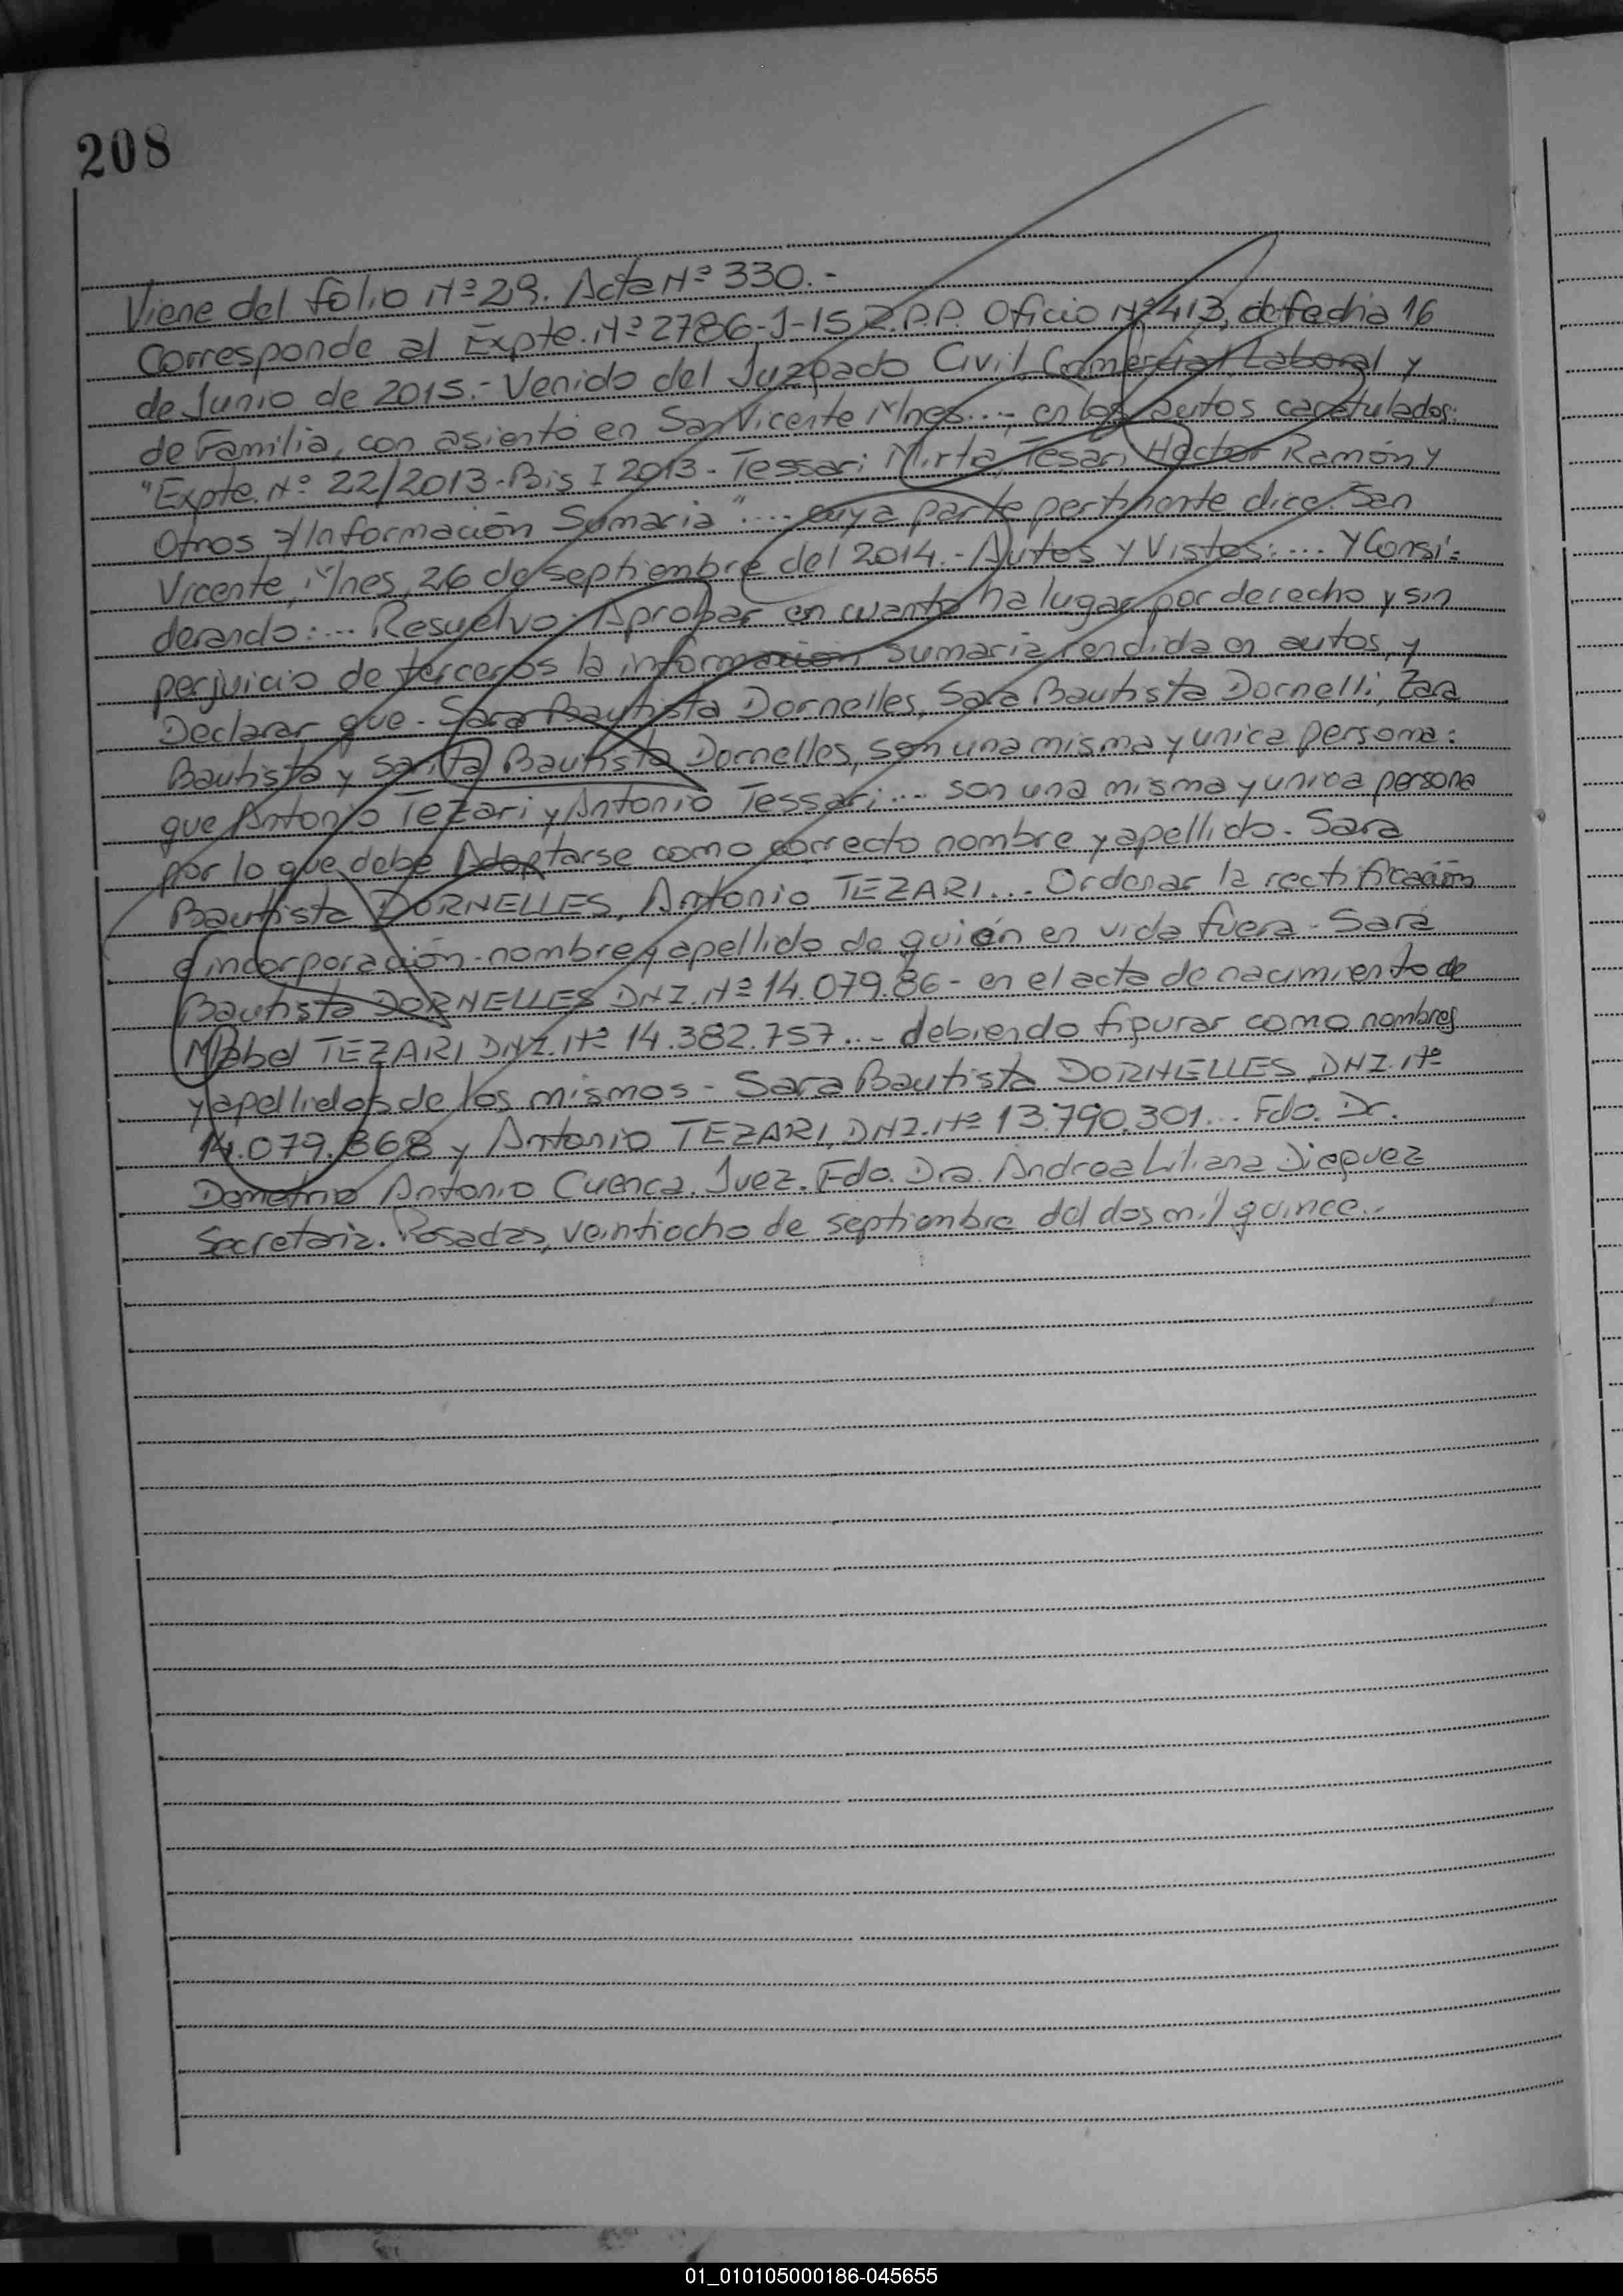 208
Viene del folio Nº 29. Acta Nº 330.-
Corresponde al Expte. Nº 2786-J-15 R.P.P. Oficio Nº 413, de fecha 16
de Junio de 2015.- Venido del Juzgado Civil, Comercial, Laboral y
de Familia, con asiento en San Vicente Mnes..., en los autos caratulados:
"Expte. Nº 22/2013-Bis I 2013- Tessari Mirta, Tesari Hector Ramón y
Otros s/Información Sumaria".... cuya parte pertinente dice: San
Vicente, Mnes, 26 de septiembre del 2014.- Autos y Vistos:.... Y Consi-
derando:.... Resuelvo: Aprobar en cuanto ha lugar por derecho y sin
perjuicio de terceros la información sumaria rendida en autos, y
Declarar que- Sara Bautista Dornelles, Sara Bautista Dornelli, Zara
Bautista y Sarita Bautista Dornelles, son una misma y unica persona:
que Antonio Tezari y Antonio Tessari... son una misma y unica persona
por lo que debe Adoptarse como correcto nombre y apellido- Sara
Bautista DORNELLES, Antonio TEZARI... Ordenar la rectificación
e incorporación- nombre y apellido de quién en vida fuera- Sara
Bautista DORNELLES DNI. Nº 14.079.86- en el acta de nacimiento de
Mabel TEZARI DNI. Nº 14.382.757... debiendo figurar como nombres
y apellidos de los mismos- Sara Bautista DORNELLES, DNI. Nº
14.079.868 y Antonio TEZARI, DNI. Nº 13.790.301... Fdo. Dr.
Demetrio Antonio Cuenca. Juez. Fdo. Dra. Andrea Liliana Dieguez
Secretaria. Posadas, veintiocho de septiembre del dos mil quince.-
01_010105000186-045655